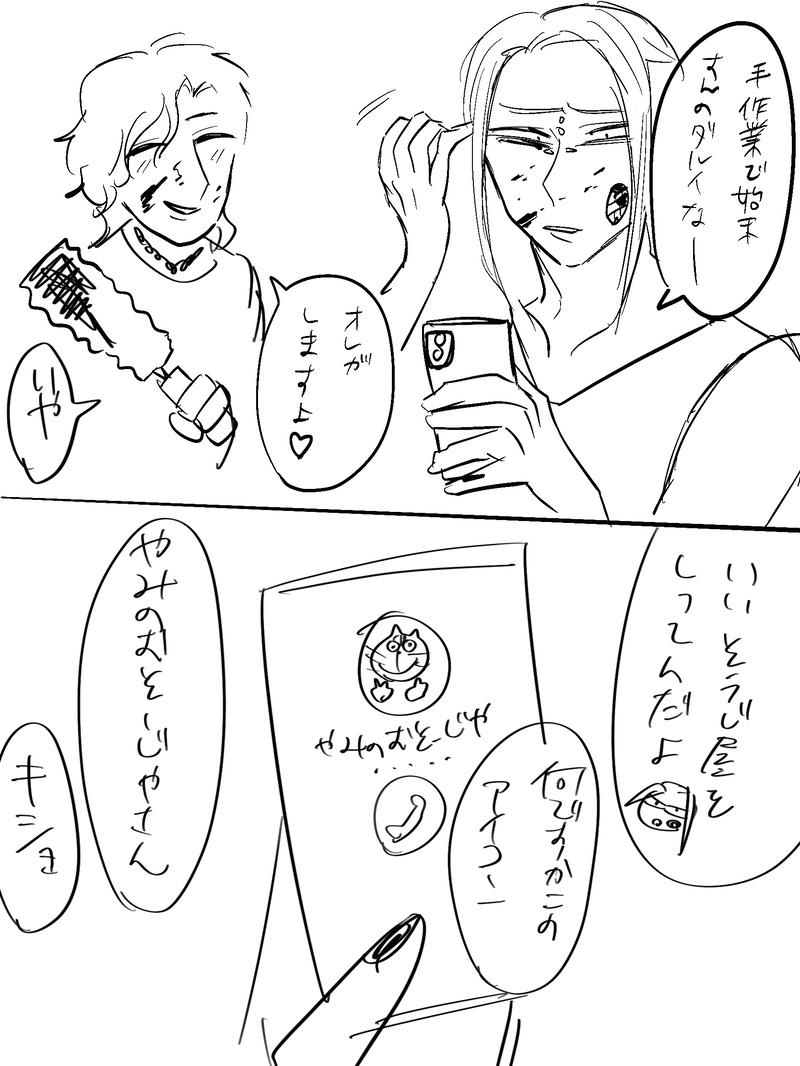 手作業で始末
すんのダルイなー
オレが
しますよ♡
いや
いいそうじ屋を
しってんだよ
やみのおそーじや
.....
何ですかこの
アイコン
やみのおそーじやさん
キショ